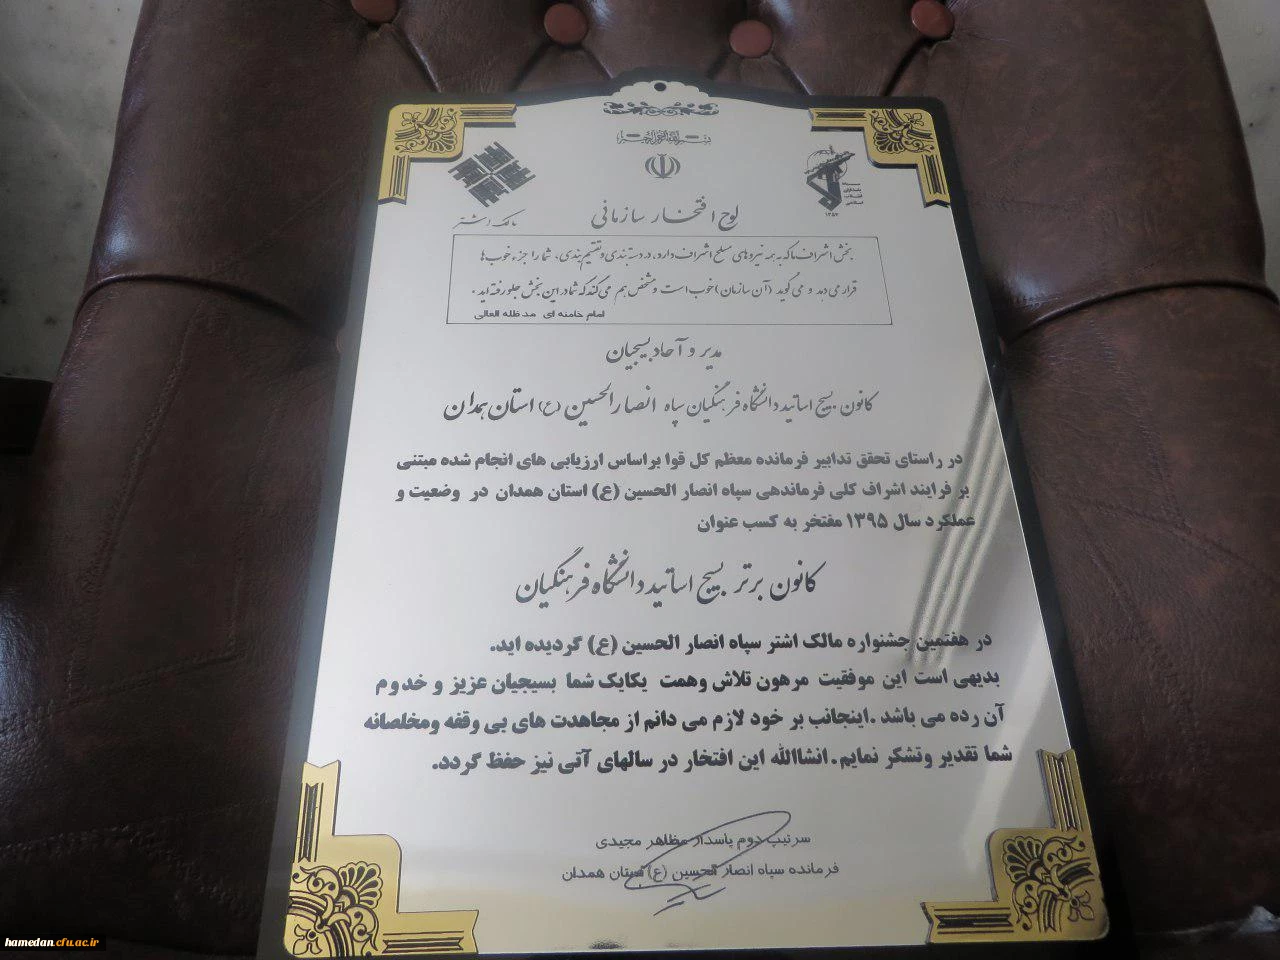 بسم الله الرحمن الرحیم
سپاه
پاسداران
انقلاب
اسلامی
۱۳۵۷
مالک اشتر
لوح افتخار سازمانی
بخش اشراف ما که به همه نیروهای مسلح اشراف دارد، در دسته بندی و تقسیم بندی، شما را جزء خوب ها
قرار می دهد و می گوید (آن سازمان) خوب است و مشخص هم می کند که شما در این بخش جلو رفته اید.
امام خامنه ای مد ظله العالی
مدیر و آحاد بسیجیان
کانون بسیج اساتید دانشگاه فرهنگیان سپاه انصار الحسین (ع) استان همدان
در راستای تحقق تدابیر فرمانده معظم کل قوا براساس ارزیابی های انجام شده مبتنی
بر فرایند اشراف کلی فرماندهی سپاه انصار الحسین (ع) استان همدان در وضعیت و
عملکرد سال ۱۳۹۵ مفتخر به کسب عنوان
کانون برتر بسیج اساتید دانشگاه فرهنگیان
در هفتمین جشنواره مالک اشتر سپاه انصار الحسین (ع) گردیده اید.
بدیهی است این موفقیت مرهون تلاش وهمت یکایک شما بسیجیان عزیز و خدوم
آن رده می باشد .اینجانب بر خود لازم می دانم از مجاهدت های بی وقفه ومخلصانه
شما تقدیر وتشکر نمایم. انشاالله این افتخار در سالهای آتی نیز حفظ گردد.
سرتیپ دوم پاسدار مظاهر مجیدی
فرمانده سپاه انصار الحسین (ع) استان همدان
hamedan.cfu.ac.ir